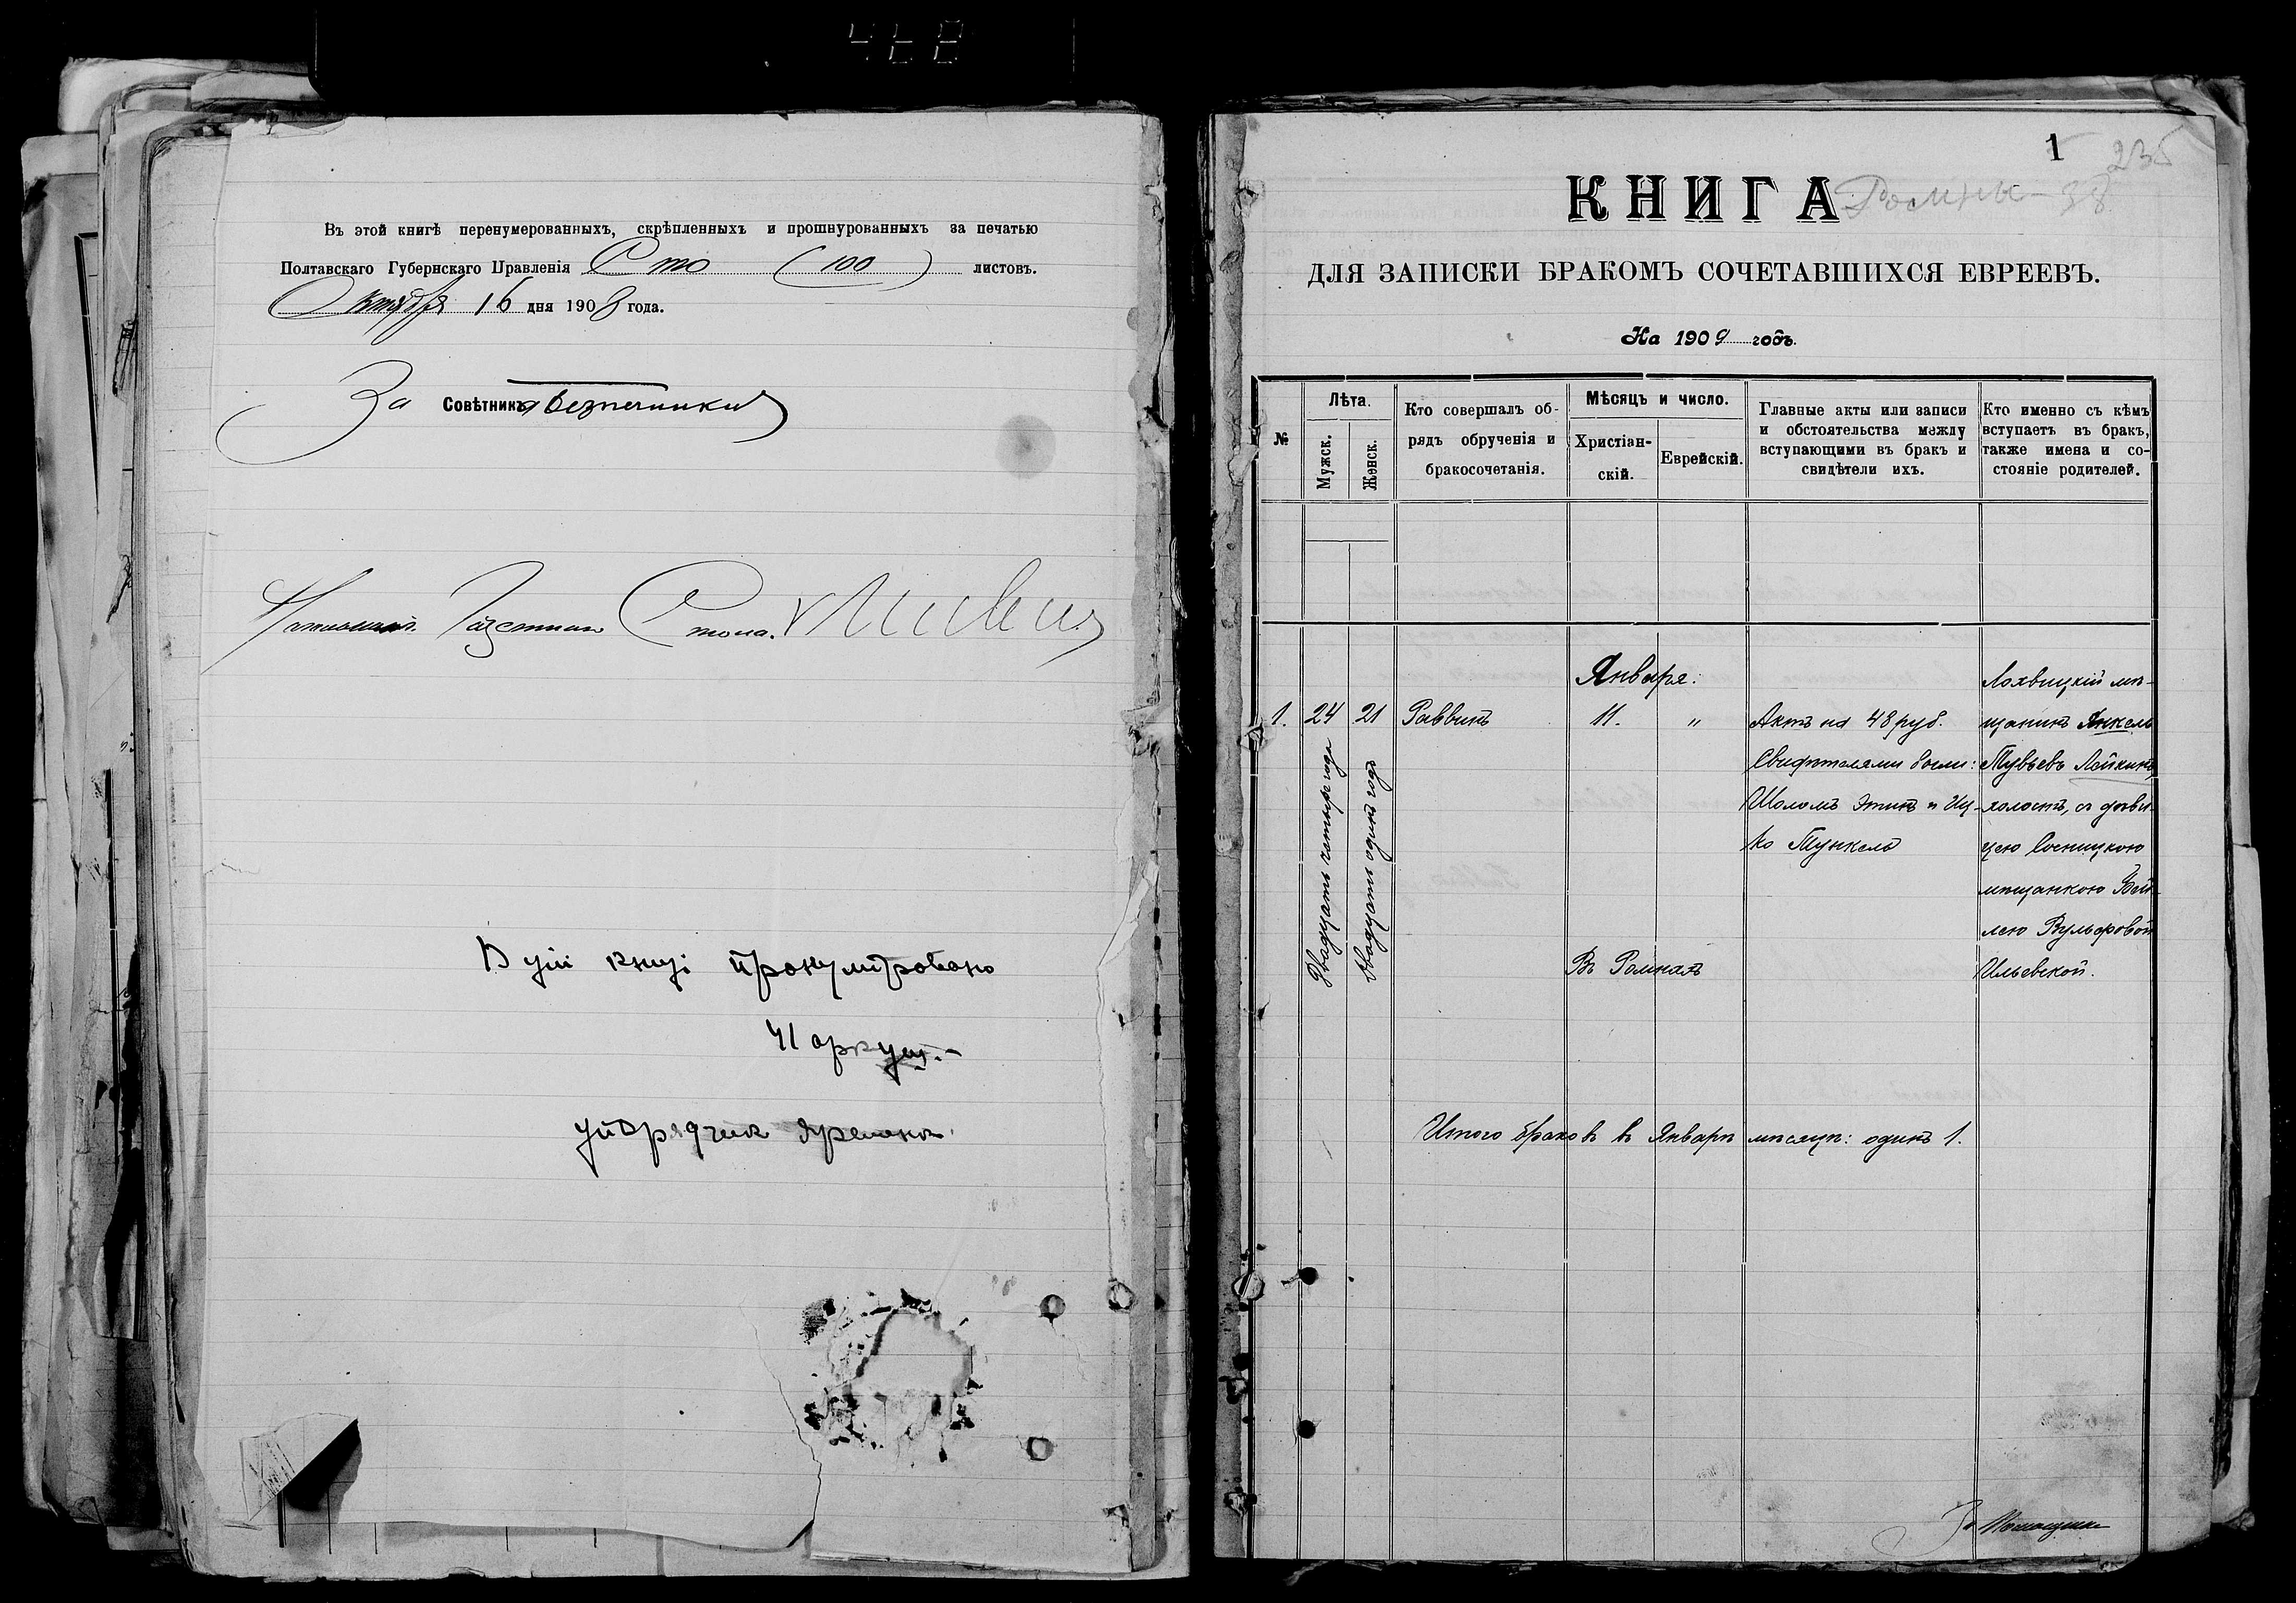 468
Въ этой книгѣ перенумерованныхъ, скрѣпленныхъ и прошнурованныхъ за печатью
Полтавскаго Губернскаго Правленія Сто (100) листовъ.
Октября 16 дня 1908 года.
За Совѣтника
Стола.
В цій книзі пронумеровано
41 аркуш.-
1
235
Ромны - 38
КНИГА
ДЛЯ ЗАПИСКИ БРАКОМЪ СОЧЕТАВШИХСЯ ЕВРЕЕВЪ.
На 1909 годъ.
№
Лѣта.
Мужск.
Женск.
Кто совершалъ об-
рядъ обрученія и
бракосочетанія.
Мѣсяцъ и число.
Христіан-
скій.
Еврейскій.
Главные акты или записи
и обстоятельства между
вступающими въ бракъ и
свидѣтели ихъ.
Кто именно съ кѣмъ
вступаетъ въ бракъ,
также имена и со-
стояніе родителей.
Января.
1.
24
Двадцать четыре года
21
Двадцать одинъ годъ
Раввинъ
11.
"
Въ Ромнахъ
Актъ на 48 руб.
Свидѣтелями были:
Шоломъ Этинъ и Иц-
ко Тункель
Лохвицкій мѣ-
щанинъ Янкель
Тувьевъ Лейкинъ,
холостъ, съ дѣви-
цею Сосницкою
мѣщанкою Бей-
лею Вульфовой
Ильевской.
Итого браковъ въ Январѣ мѣсяцѣ: одинъ 1.